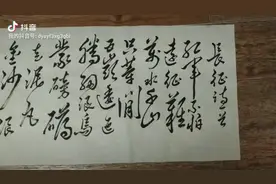 抖音
长征诗一首
红军不怕
远征难
万水千山
只等闲
五岭逶迤
腾细浪乌
蒙磅礴
走泥丸
金沙